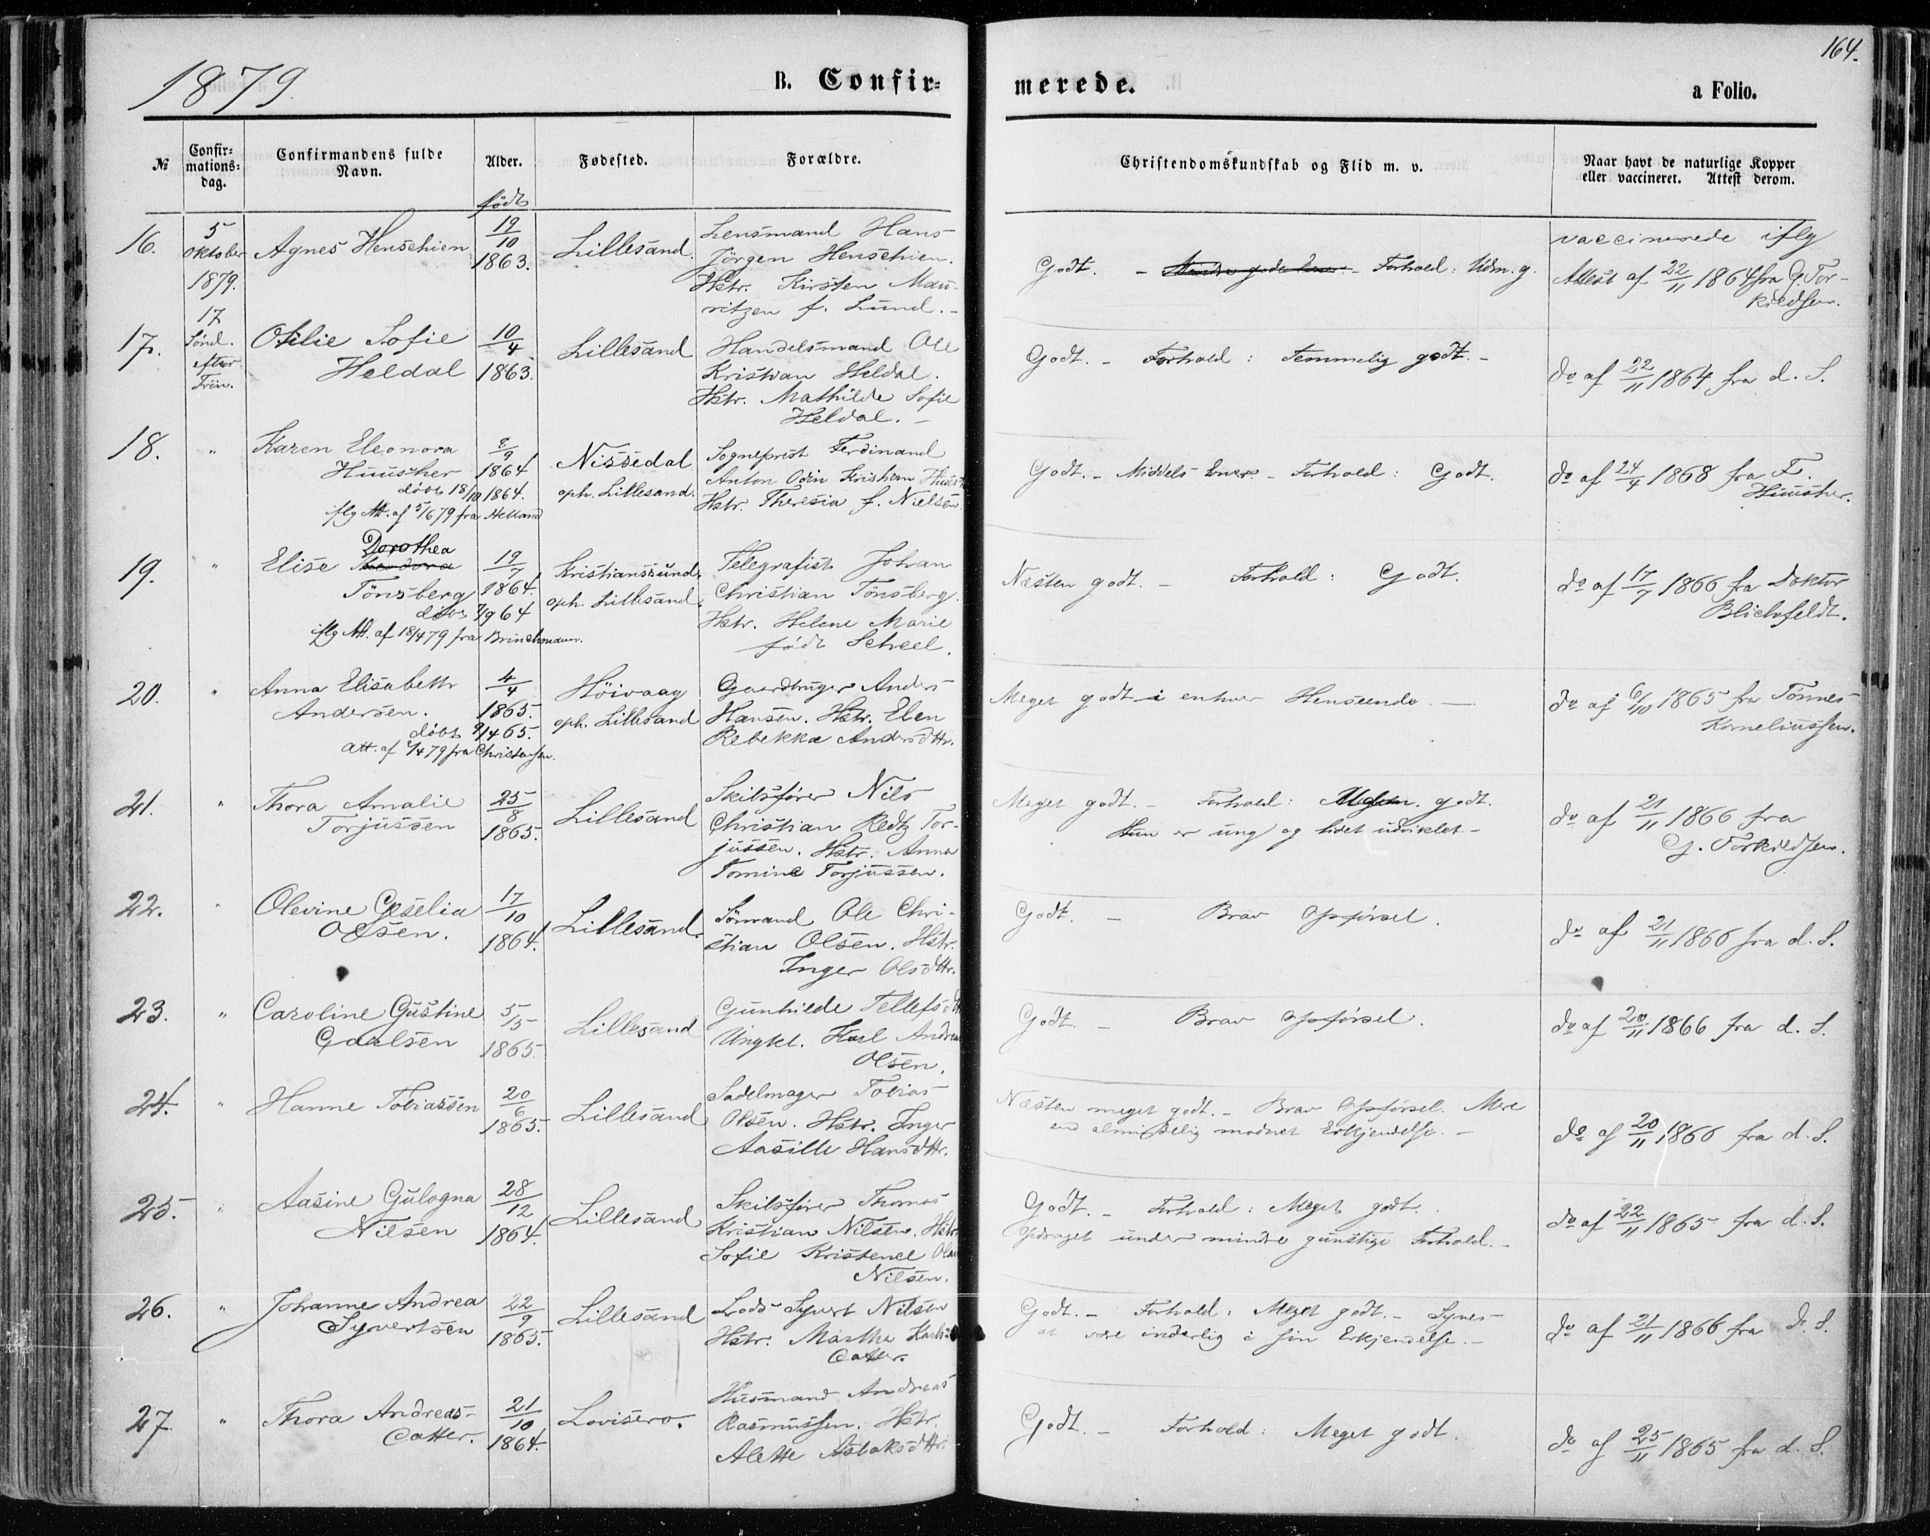 164.
1879.
B. Confirmerede.
a Folio.
№
Confirmationsdag.
Confirmandens fulde Navn.
Alder.
Fødested.
Forældre.
Christendomskundskab og Flid m. v.
Naar havt de naturlige Kopper eller vaccineret. Attest derom.
født
16.
5 oktober 1879. 17 Sønd. efter Trin.
Agnes Henschien
19/10 1863.
Lillesand.
Lensmand Hans
Jörgen Henschien.
Hstr. Kirsten Mau-
ritzen f. Lund.
Godt. - Forhold: Udm. g.
vaccinerede iflg
Attest af 22/11 1864 fra G. Tor-
kildsen.
17.
Otilie Sofie
Heldal
10/4 1863.
Lillesand
Handelsmand Ole
Kristian Heldal.
Hstr. Mathilde Sofie
Heldal. -
Godt. - Forhold: Temmelig godt. -
do af 22/11 1864 fra d. S.
18.
"
Karen Eleonora
Huuscher
døbt 18/10 1864.
iflg Att. af 5/6 79 fra Helland
8/9 1864
Nissedal
oph. Lillesand.
Sogneprest Ferdinand
Anton Odin Kristian
Hstr. Theresia f. Nielsen
Godt. - Middels Evner. - Forhold: Godt.
do af 24/4 1868 fra F.
Huuscher.
19.
"
Elise Dorothea
Tönsberg
døbt 7/9 64
iflg Att. af 18/4 79 fra Brinchmann.
19/7 1864.
Kristianssund,
oph. Lillesand
Telegrafist Johan
Christian Tönsberg.
Hstr. Helene Marie
født Scheel.
Næsten godt. - Forhold: Godt.
do af 17/7 1866 fra Doktor
Blichfeldt.
20.
"
Anna Elisabeth
Andersen.
døbt 9/4 65.
Att. af /4 79 fra Christensen.
4/4 1865.
Höivaag
oph. Lillesand
Gaardbruger Anders
Hansen. Hstr. Elen
Rebekka Andersdttr.
Meget godt i enhver Henseende. -
do af 6/10 1865 fra Tønnes
Korneliussen.
21.
"
Thora Amalie
Torjussen
25/8 1865.
Lillesand
Skibsfører Nils
Christian Redtz Tor-
jussen. Hstr. Anna
Tomine Torjussen.
Meget godt. - Forhold: Meget godt.
Hun er ung og lidet udviklet. -
do af 21/11 1866 fra
G. Torkildsen.
22.
"
Olevine Geselia
Olsen.
17/10 1864.
Lillesand.
Sömand Ole Chri-
stian Olsen. Hstr.
Inger Olsdttr.
Godt. - Brav Opførsel.
do af 21/11 1866 fra d. S.
23.
"
Caroline Gustine
Carlsen
5/5 1865.
Lillesand
Gunhilde Tellefsdtt
Ungkl. Karl Andreas
Olsen.
Godt. - Brav Opførsel.
do af 20/11 1866 fra d. S.
24.
"
Hanne Tobiassen
20/6 1865.
Lillesand
Sadelmager Tobias
Olsen. Hstr. Inger
Aasille Hansdttr.
Næsten meget godt. - Brav Opførsel. Mere
end almindelig modnet Erkjendelse. -
do af 20/11 1866 fra d. S.
25.
"
Aasine Gulogna
Nilsen
28/12 1864.
Lillesand
Skibsfører Thomas
Kristian Nilsen. Hstr
Sofie Kristence
Nilsen.
Godt. - Forhold: Meget godt.
Opdraget under mindre gunstige Forhold. -
do af 22/11 1865 fra d. S.
26.
"
Johanne Andrea
Syvertsen
22/9 1865.
Lillesand
Lods Syvert Nilsen
Hstr. Marthe
Datter.
Godt. - Forhold: Meget godt. - Synes
at være inderlig i sin Erkjendelse. -
do af 21/11 1866 fra d. S.
27.
"
Thora Andreas-
Datter.
21/10 1864.
Lovisero.
Husmand Andreas
Rasmussen. Hstr.
Alette Aslaksdttr
Godt. - Forhold: Meget godt.
do af 25/11 1865 fra d. S.